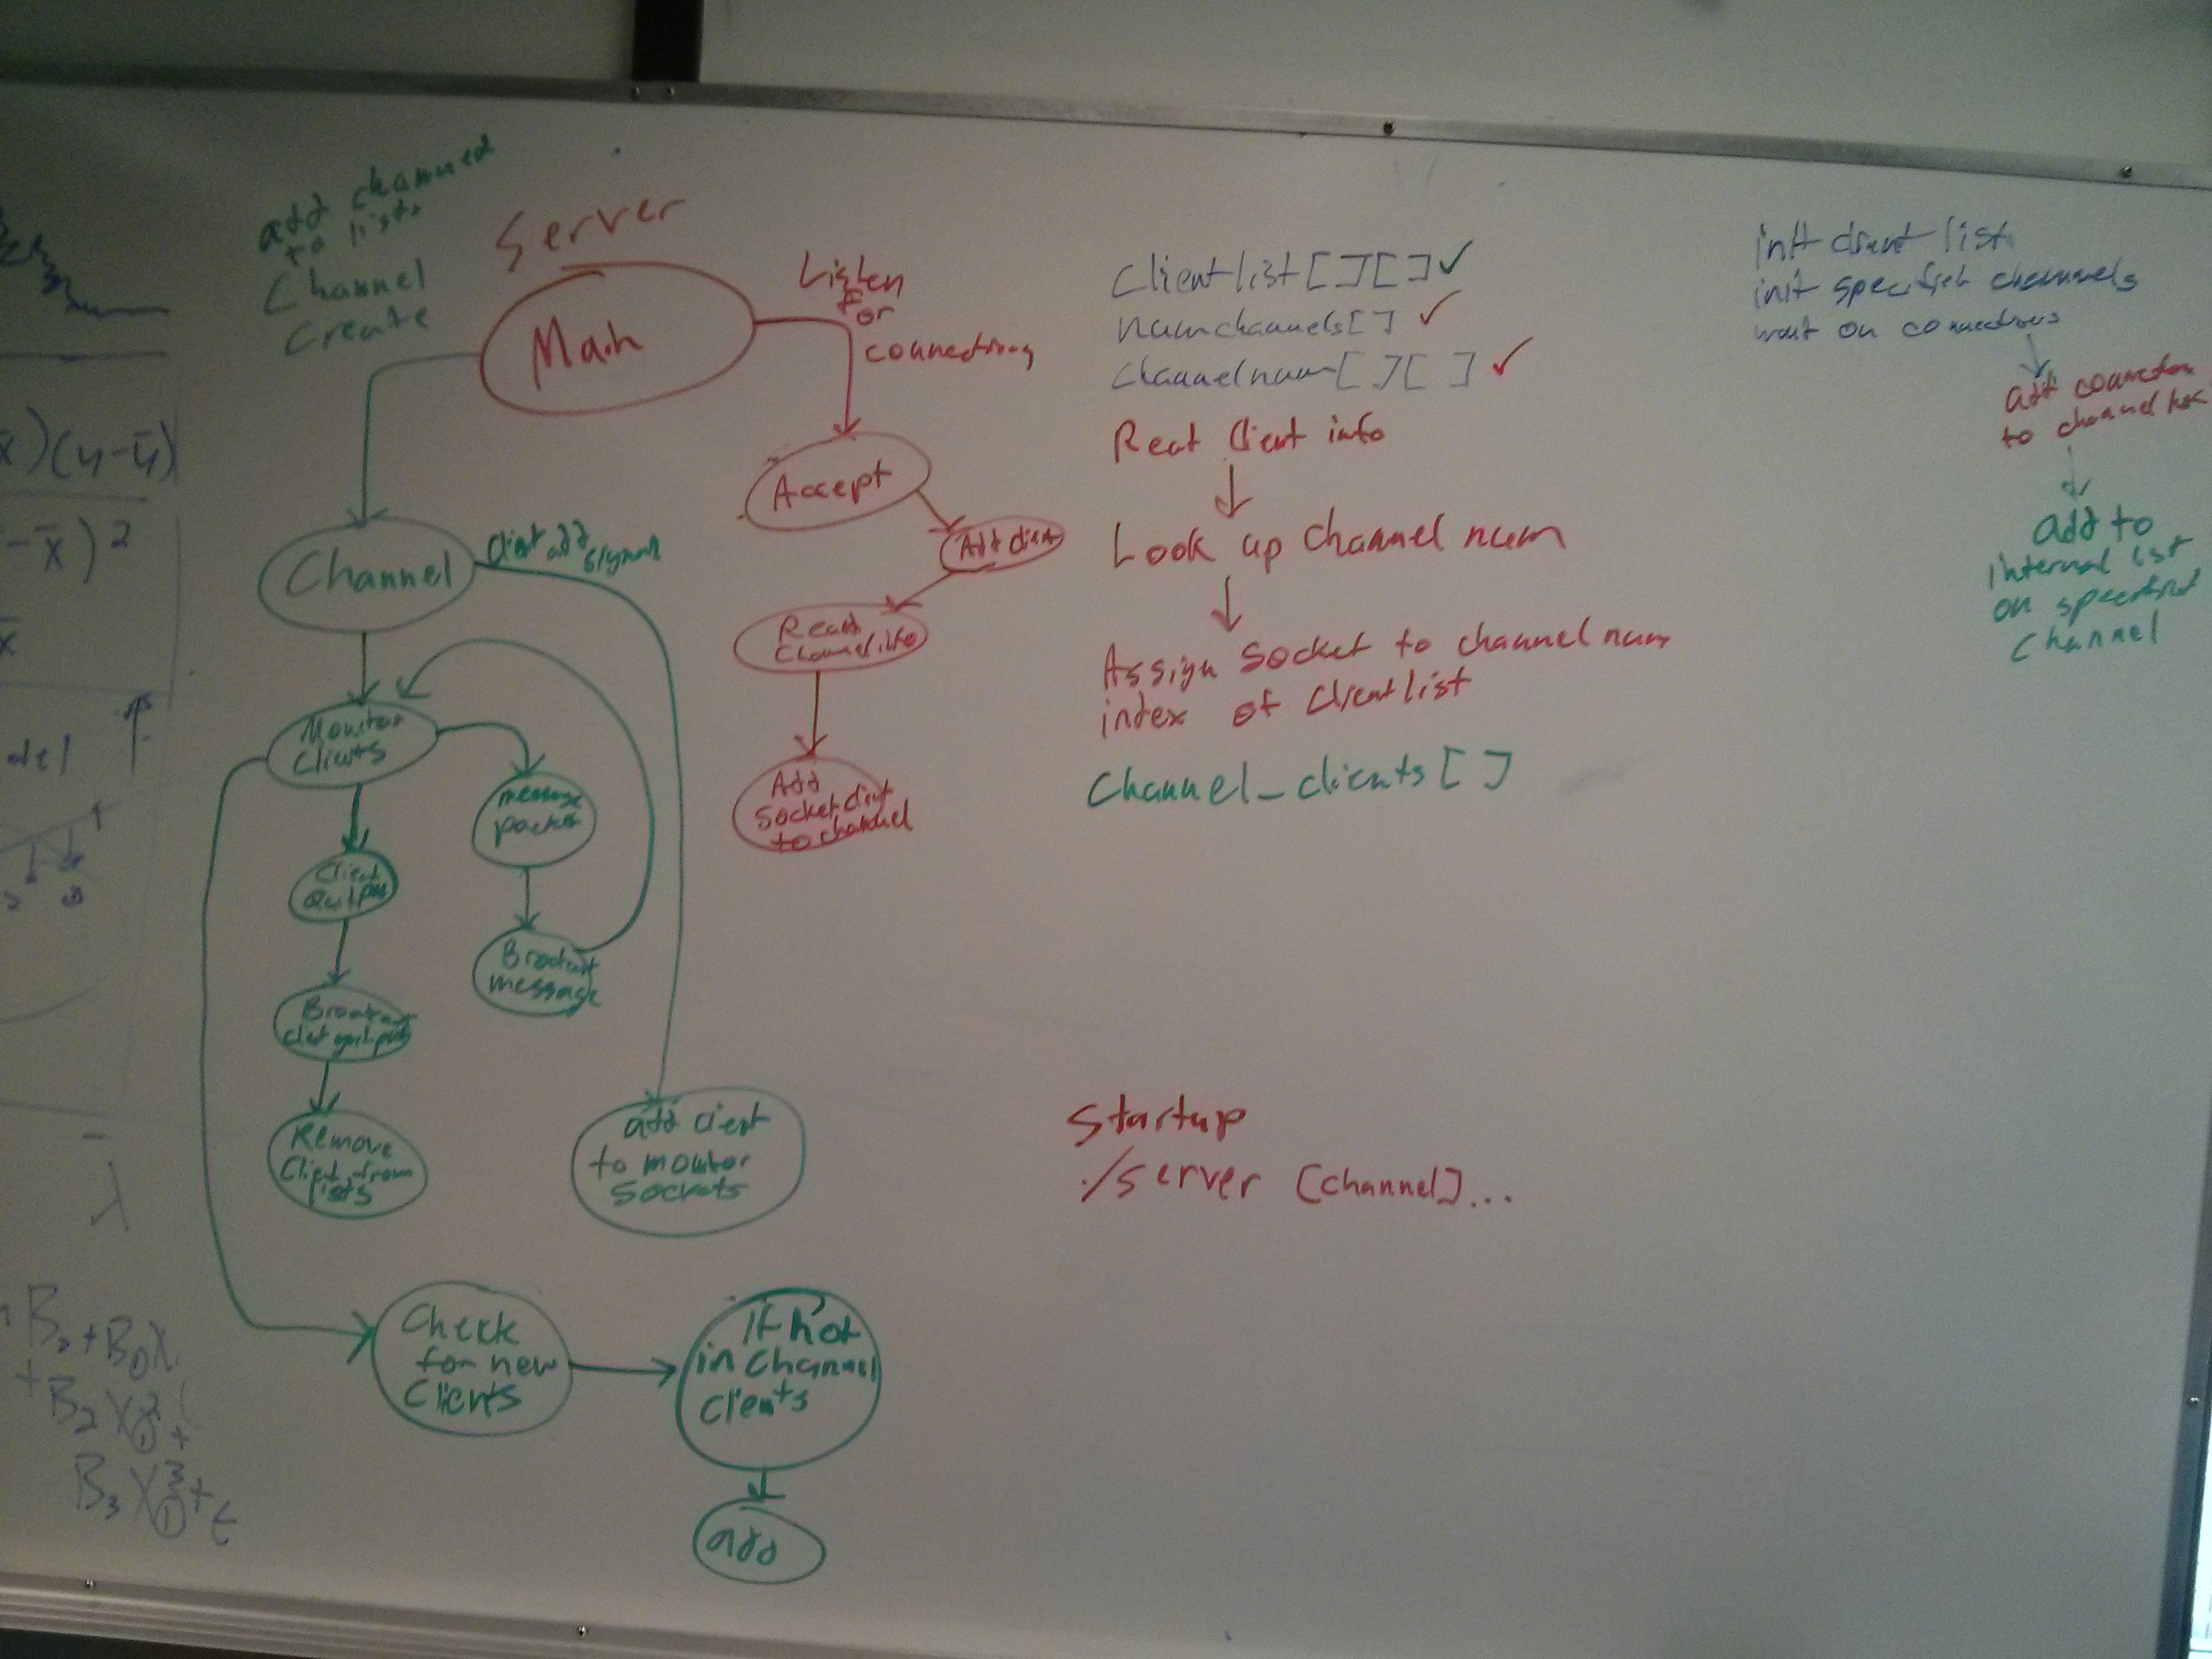 add channel
to lists
Channel
Create
Server
Main
Listen
For
connections
Accept
Add client
Read
Channel info
Add
Socket client
to channel
Channel
Client add
signal
Monitor
Clients
message
packet
Client
Quit
message
Client quit
Remove
Client from
lists
add client
to monitor
sockets
Check
for new
Clients
If not
in channel
clients
add
Client list [ ][ ] ✓
numchannels [ ] ✓
Channelnum [ ][ ] ✓
Read Client info
Look up channel num
Assign Socket to channel num
index of Clientlist
Channel_clients [ ]
Startup
./server [channel]...
init client list
init specified channels
wait on connections
add connection
to channel list
add to
internal list
on specified
channel
)(y-ȳ)
-x̄)²
x̄
del
λ
B₃X